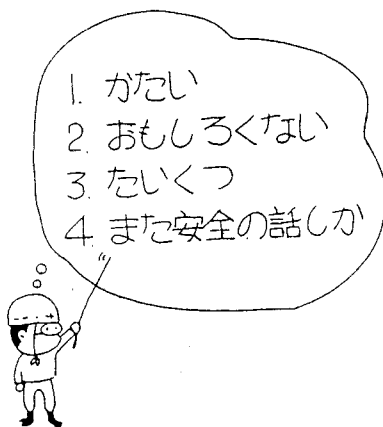 1. かたい
2. おもしろくない
3. たいくつ
4. また安全の話しか